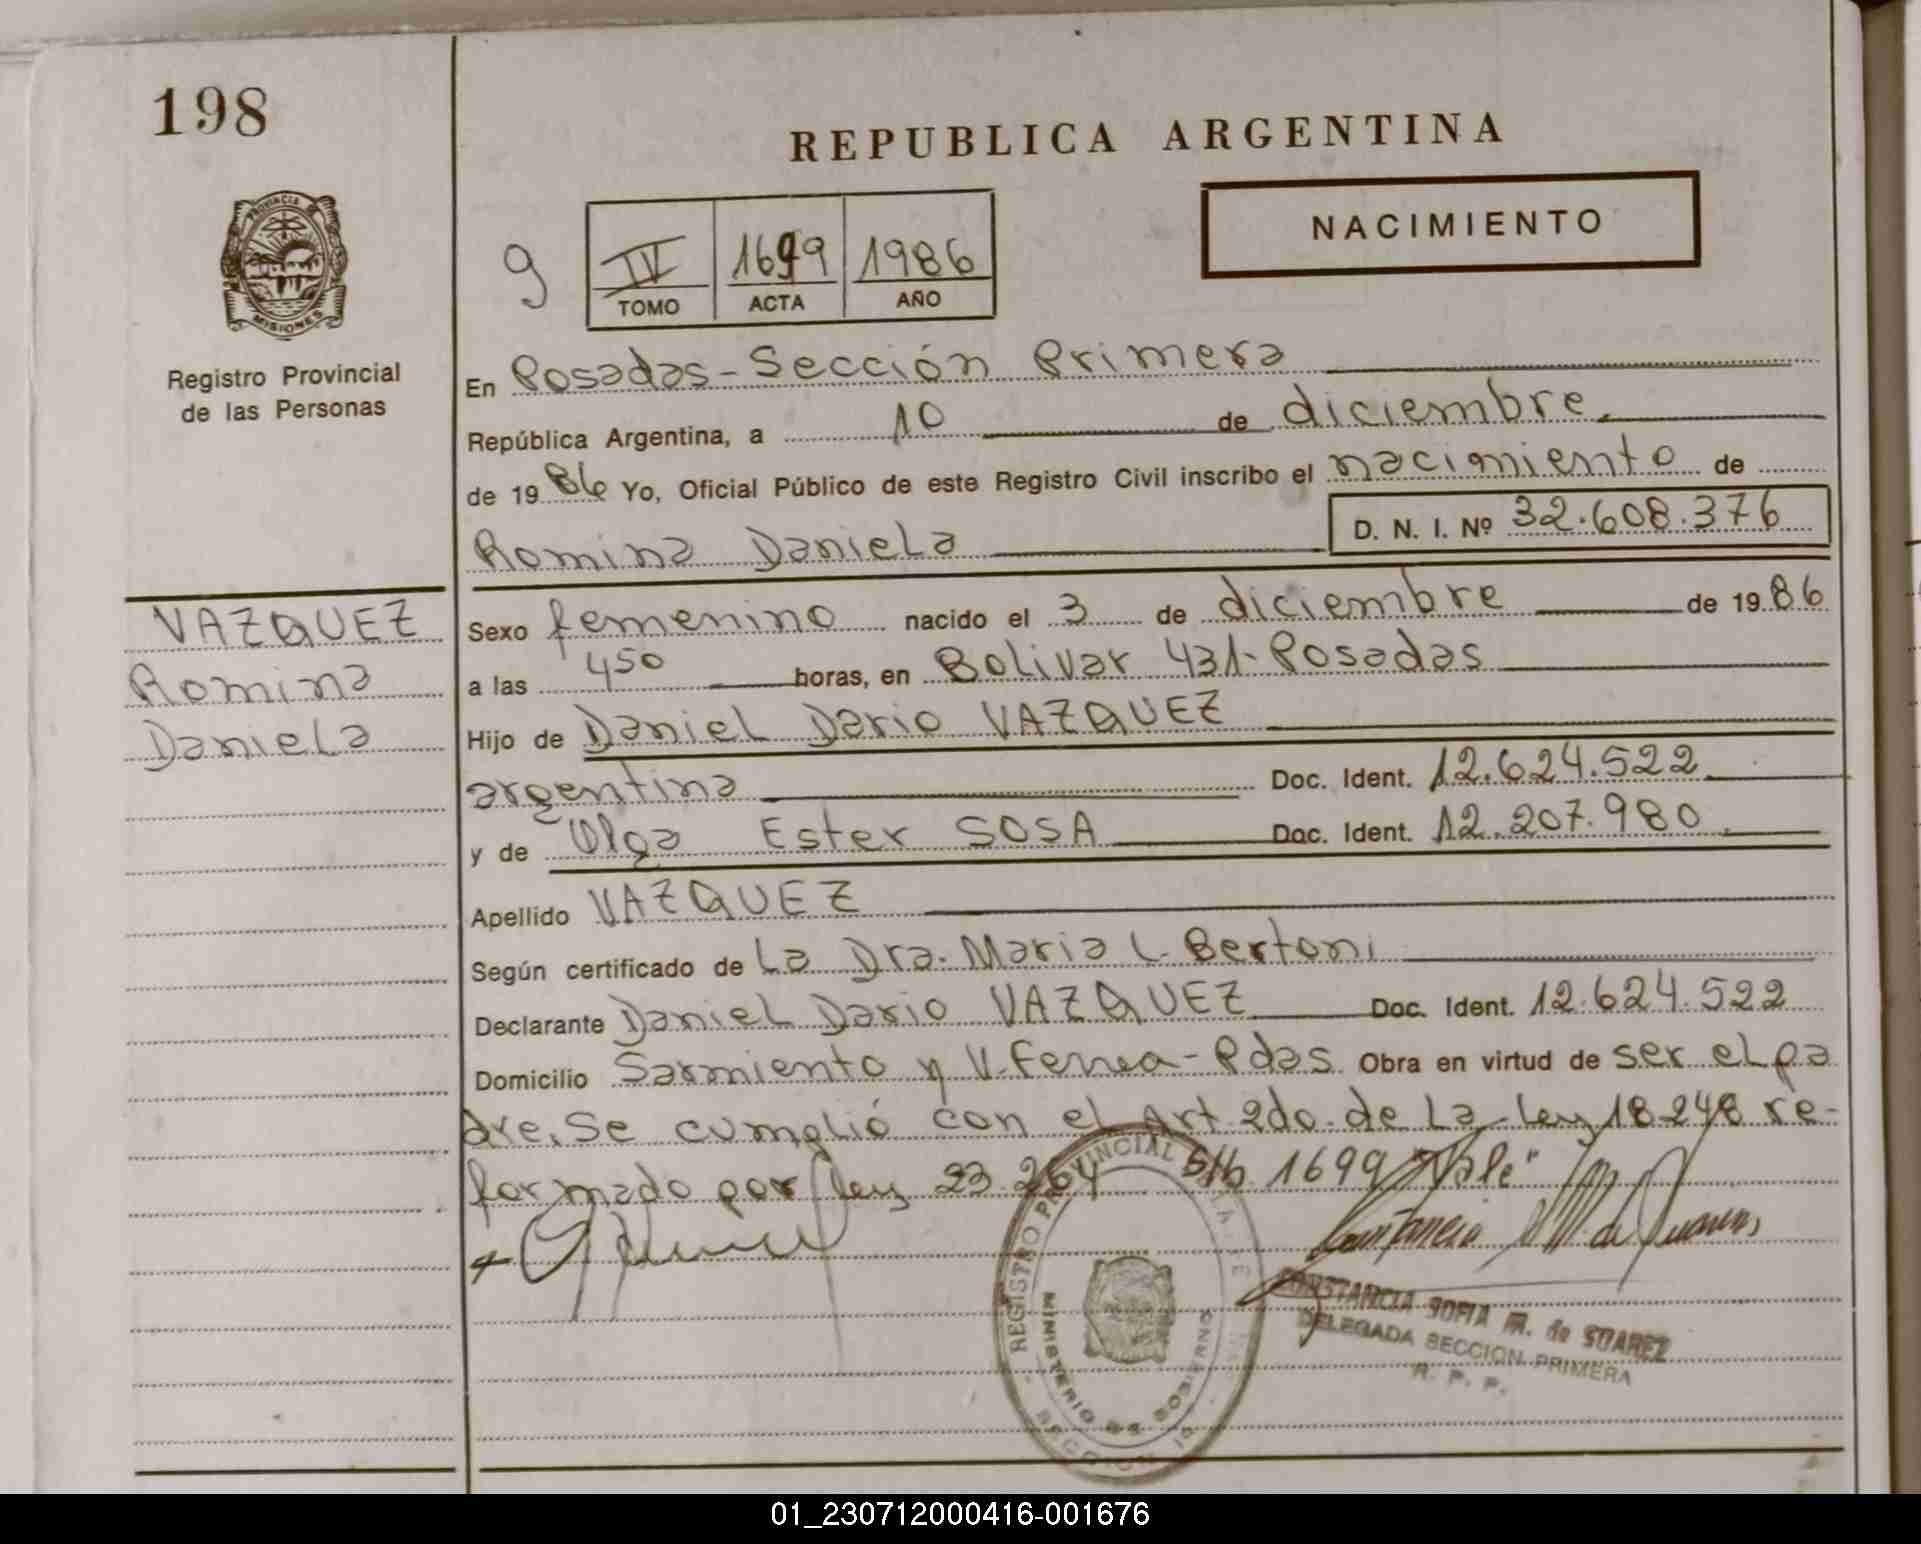 198
REPUBLICA ARGENTINA
NACIMIENTO
9
IV 1699 1986
TOMO ACTA AÑO
PROVINCIA DE
MISIONES
Registro Provincial
de las Personas
En Posadas-Sección Primera
República Argentina, a 10 de diciembre
de 1986 Yo, Oficial Público de este Registro Civil inscribo el nacimiento de
D. N. I. Nº 32.608.376
Romina Daniela
VAZQUEZ
Romina
Daniela
Sexo femenino nacido el 3 de diciembre de 1986
a las 450 horas, en Bolivar 431-Posadas
Hijo de Daniel Dario VAZQUEZ
argentina Doc. Ident. 12.624.522
y de Olga Ester SOSA Doc. Ident. 12.207.980
Apellido VAZQUEZ
Según certificado de La Dra. Maria L. Bertoni
Declarante Daniel Dario VAZQUEZ Doc. Ident. 12.624.522
Domicilio Sarmiento y V. Ferrea-Pdas. Obra en virtud de ser el pa
dre. Se cumplió con el Art 2do. de La Ley 18.248 re-
formado por ley 23.264 S/b 1699 "Vale"
REGISTRO PROVINCIAL
MINISTERIO DE GOBIERNO
CONSTANCIA SOFIA M. de SUAREZ
DELEGADA SECCION PRIMERA
R. P. P.
01_230712000416-001676